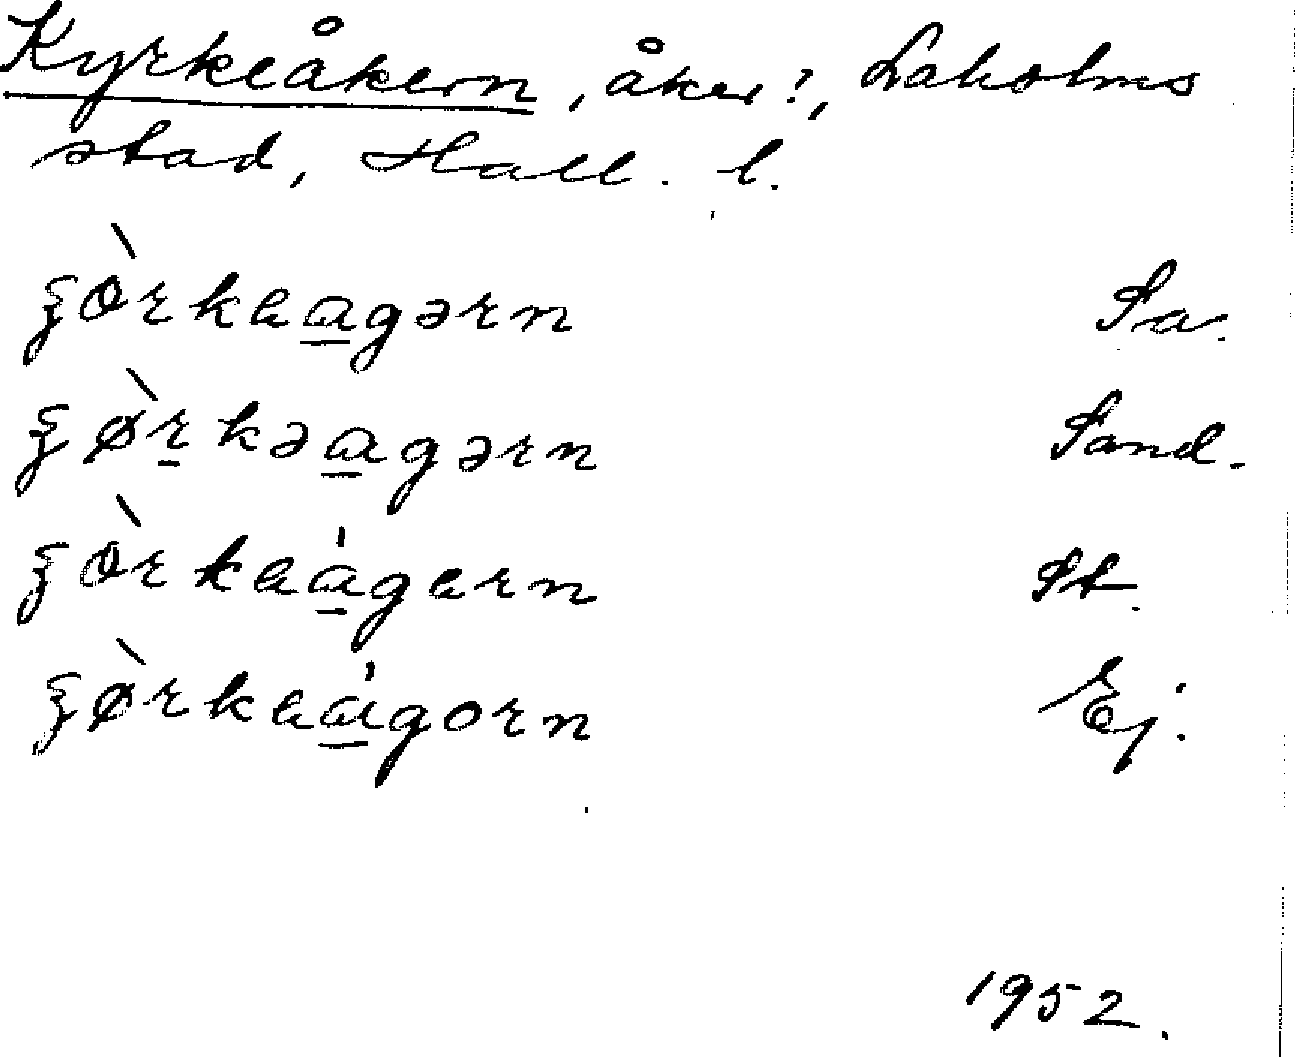 Kyrkeåkern, åker?, Laholms
stad, Hall. l.
ʒòrkaa̲gərn Sa.
ʒø̀r̲kəa̲gərn Sand.
ʒòrkaá̲garn St.
ʒø̀rkaá̲gorn Ej.
1952.